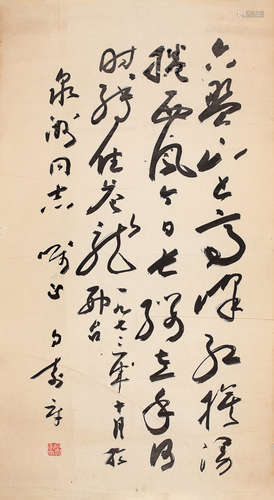 六盘山上高峰红旗漫
捲西风今日长缨在手何
时缚住苍龙 一九七二年十月於
邢台
泉 同志嘱正 白寿章